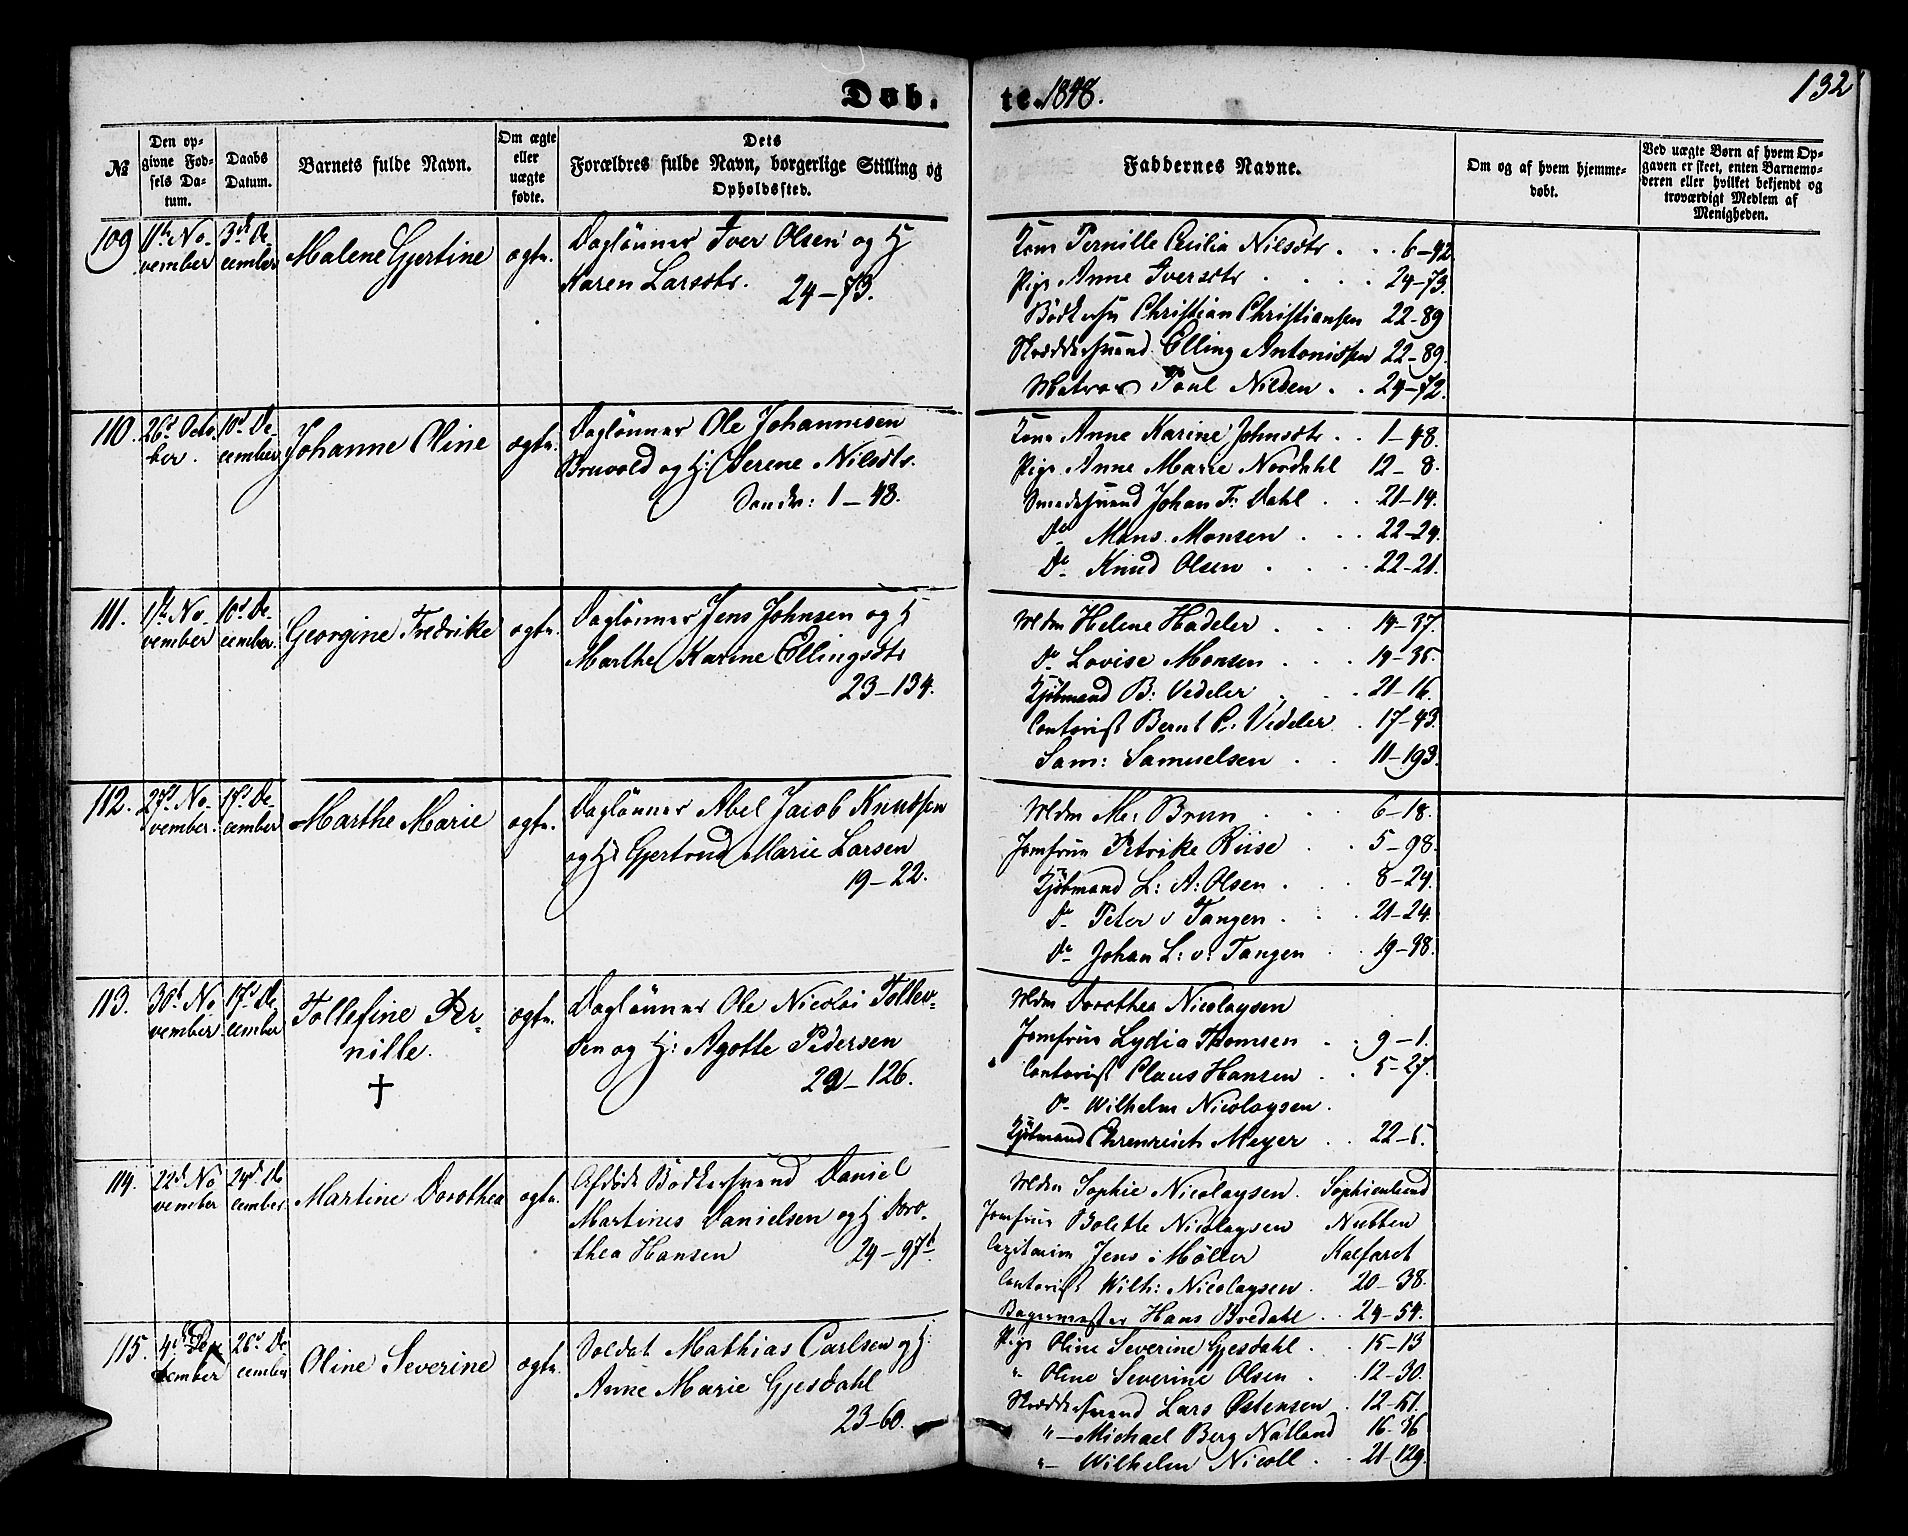 Døb. te. 1848. 132
№
Den opgivne Fødsels Datum.
Daabs Datum.
Barnets fulde Navn.
Om ægte eller uægte fødte.
Dets Forældres fulde Navn, borgerlige Stilling og Opholdssted.
Faddernes Navne.
Om og af hvem hjemmedøbt.
Ved uægte Børn af hvem Opgaven er skeet, enten Barnemoderen eller hvilket bekjendt og troværdigt Medlem af Menigheden.
109 November 3d December Malene Gjertine ægte. Daglønner Iver Olsen og H
Karen Larsdtr. 24-73.
Kone Pernille Cecilia Nilsdtr. 6-42
Pige Anne Iversdtr 24-73.
Bødkersv Christian Christiansen 22-89
Skrædersvend Elling Antonissen 22-89.
Matros Poul Nilsen 24-72.
110. 26d October. 10d December Johanne Oline ægte. Daglønner Ole Johannesen
Bruvold og H: Serene Nilsdtr.
Sandv: 1-48.
Kone Anne Karine Johnsdtr 1-48.
Pige Anne Marie Nordahl 12-8.
Smedesvend Johan F. Dahl 21-14.
Do Mons Monsen 22-24.
Do Knud Olsen 22-21.
111. November 10d December. Georgine Fredrike ægte. Daglønner Jens Johnsen og H
Marthe Karine Ellingsdtr
23-134.
Mdm Helene Hadeler 14-37.
Do Lovise Monsen 19-35.
Kjøbmand B: Vedeler 21-16.
Contorist Bernt C. Vedeler 17-43.
Sam: Samuelsen 11-193.
112. 27d November. 17d December Marthe Marie ægte. Daglønner Abel Jacob Knudsen
og H: Gjertrud Marie Larsen
19-22.
Mdm M: Brun 6-18.
Jomfrue Petrike Riise 5-98.
Kjøbmand L: A: Olsen 8-24.
Do Peter v Tangen 21-24.
Do Johan L: v: Tangen 19-38.
113. 30d November. 17d December Tollefine Pernille. † ægte. Daglønner Ole Nicolai Tollevsen og H: Agotte Pedersen
22-126.
Mdm Dorothea Nicolaysen
Jomfrue Lydia Thomsen 9-1.
Contorist Claus Hansen 5-27.
Do Wilhelm Nicolaysen.
Kjøbmand Ehrenreich Meyer 22-5.
114. 22d November 24d December. Martine Dorothea ægte. Afdøde Bødkersvend Daniel
Martinus Danielsen og H Dorothea Hansen 24-97b
Mdm Sophie Nicolaysen. Sophienlund
Jomfrue Bolette Nicolaysen Nubben
Capitaine Jens Møller Kalfaret
Contorist Wilh: Nicolaysen. 20-38.
Bagermester Hans Bredahl 24-54.
115. 4d December 26d December Oline Severine ægte. Soldat Mathias Carlsen og H:
Anne Marie Gjesdahl
23-60.
Pige Oline Severine Gjesdahl 15-13
" Oline Severine Olsen 12-30.
Skrædersvend Lars Østensen 12-51.
" Michael Berg Natland 16-36
" Wilhelm Nicoll 21-129.